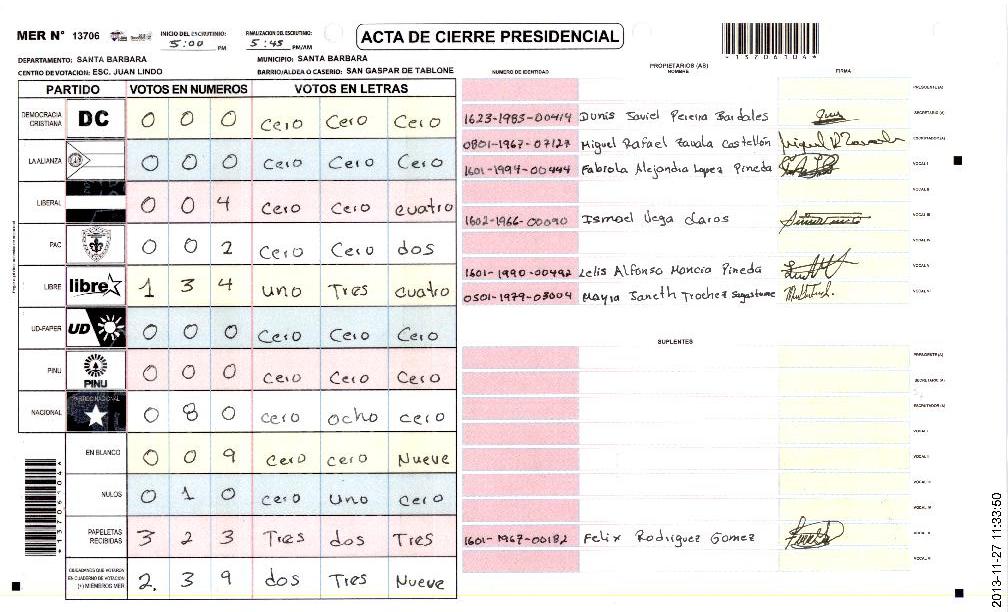 MER N° 13706
INICIO DEL ESCRUTINIO:
5:00 PM
FINALIZACION DEL ESCRUTINIO:
5:45 PM/AM
ACTA DE CIERRE PRESIDENCIAL
*13706104*
DEPARTAMENTO: SANTA BARBARA
MUNICIPIO: SANTA BARBARA
CENTRO DE VOTACION: ESC. JUAN LINDO
BARRIO/ALDEA O CASERIO: SAN GASPAR DE TABLONE
PARTIDO VOTOS EN NUMEROS VOTOS EN LETRAS
DEMOCRACIA CRISTIANA DC 0 0 0 Cero Cero Cero
LA ALIANZA 0 0 0 Cero Cero Cero
LIBERAL 0 0 4 Cero Cero cuatro
PAC 0 0 2 Cero Cero dos
LIBRE libre 1 3 4 uno Tres cuatro
UD-FAPER UD 0 0 0 Cero Cero Cero
PINU PINU 0 0 0 Cero Cero Cero
NACIONAL 0 8 0 cero ocho cero
EN BLANCO 0 0 9 cero cero Nueve
NULOS 0 1 0 cero uno cero
PAPELETAS RECIBIDAS 3 2 3 Tres dos Tres
CIUDADANOS QUE VOTARON EN CUADERNO DE VOTACION (+) MIEMBROS MER 2. 3 9 dos Tres Nueve
PROPIETARIOS (AS)
NUMERO DE IDENTIDAD NOMBRE FIRMA
PRESIDENTE(A)
1623-1983-00414 Dunis Javiel Pereira Bardales SECRETARIO (A)
0801-1967-07127 Miguel Rafael Zavala Castellón ESCRUTADOR(A)
1601-1994-00444 Fabiola Alejandra Lopez Pineda VOCAL I
VOCAL II
1602-1966-00090 Ismael Vega Claros VOCAL III
VOCAL IV
1601-1990-00492 Lelis Alfonso Moncia Pineda VOCAL V
0501-1979-03004 Mayra Janeth Trochez Sagastume VOCAL VI
SUPLENTES
PRESIDENTE(A)
SECRETARIO (A)
ESCRUTADOR(A)
VOCAL I
VOCAL II
VOCAL III
VOCAL IV
1601-1967-00182 Felix Rodriguez Gomez VOCAL V
VOCAL VI
*13706104*
2013-11-27 11:33:50